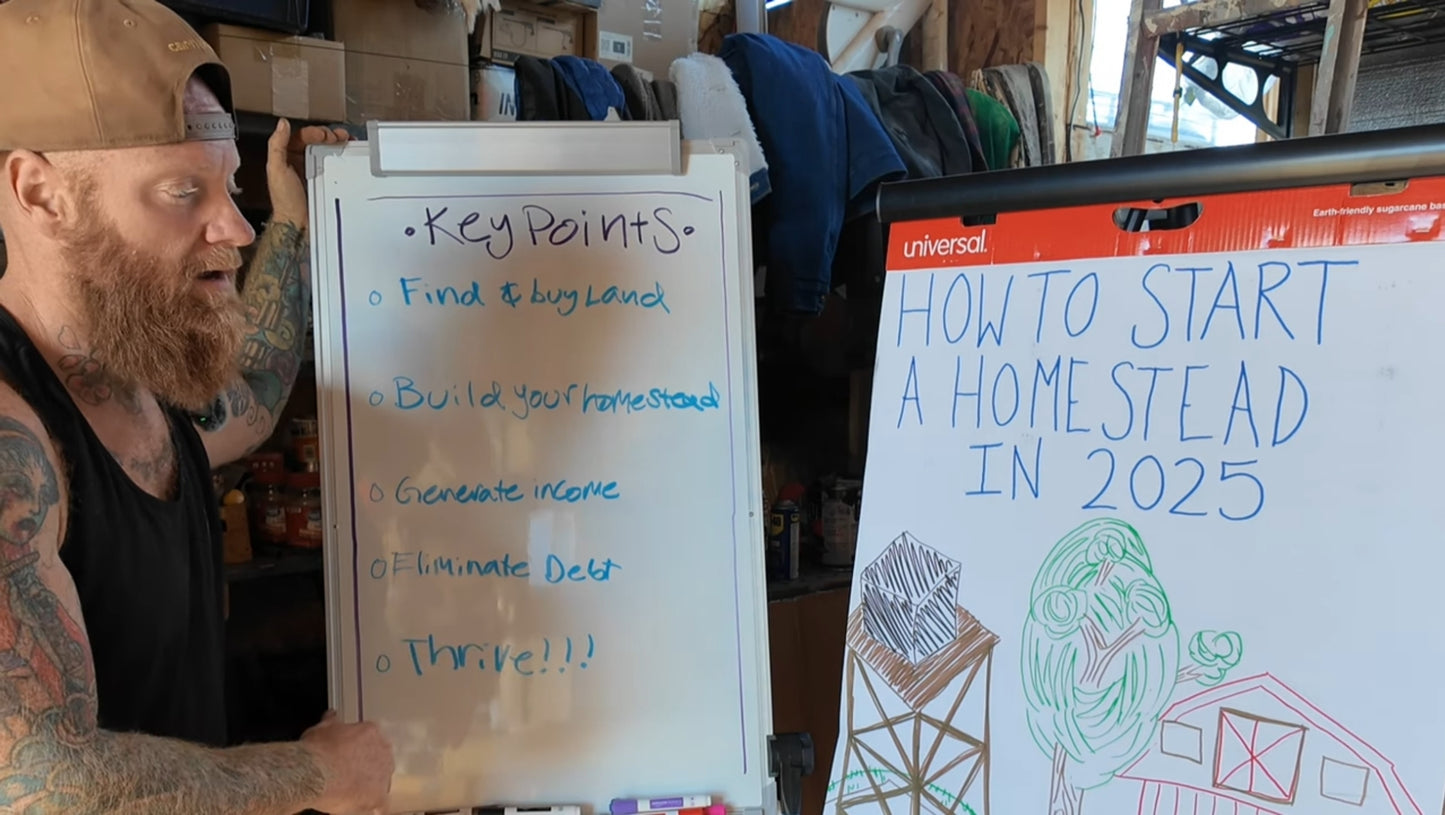 •Key Points•
o Find & buy Land
o Build your homestead
o Generate income
o Eliminate Debt
o Thrive!!!
universal.
Earth-friendly sugarcane bas
HOW TO START
A HOMESTEAD
IN 2025